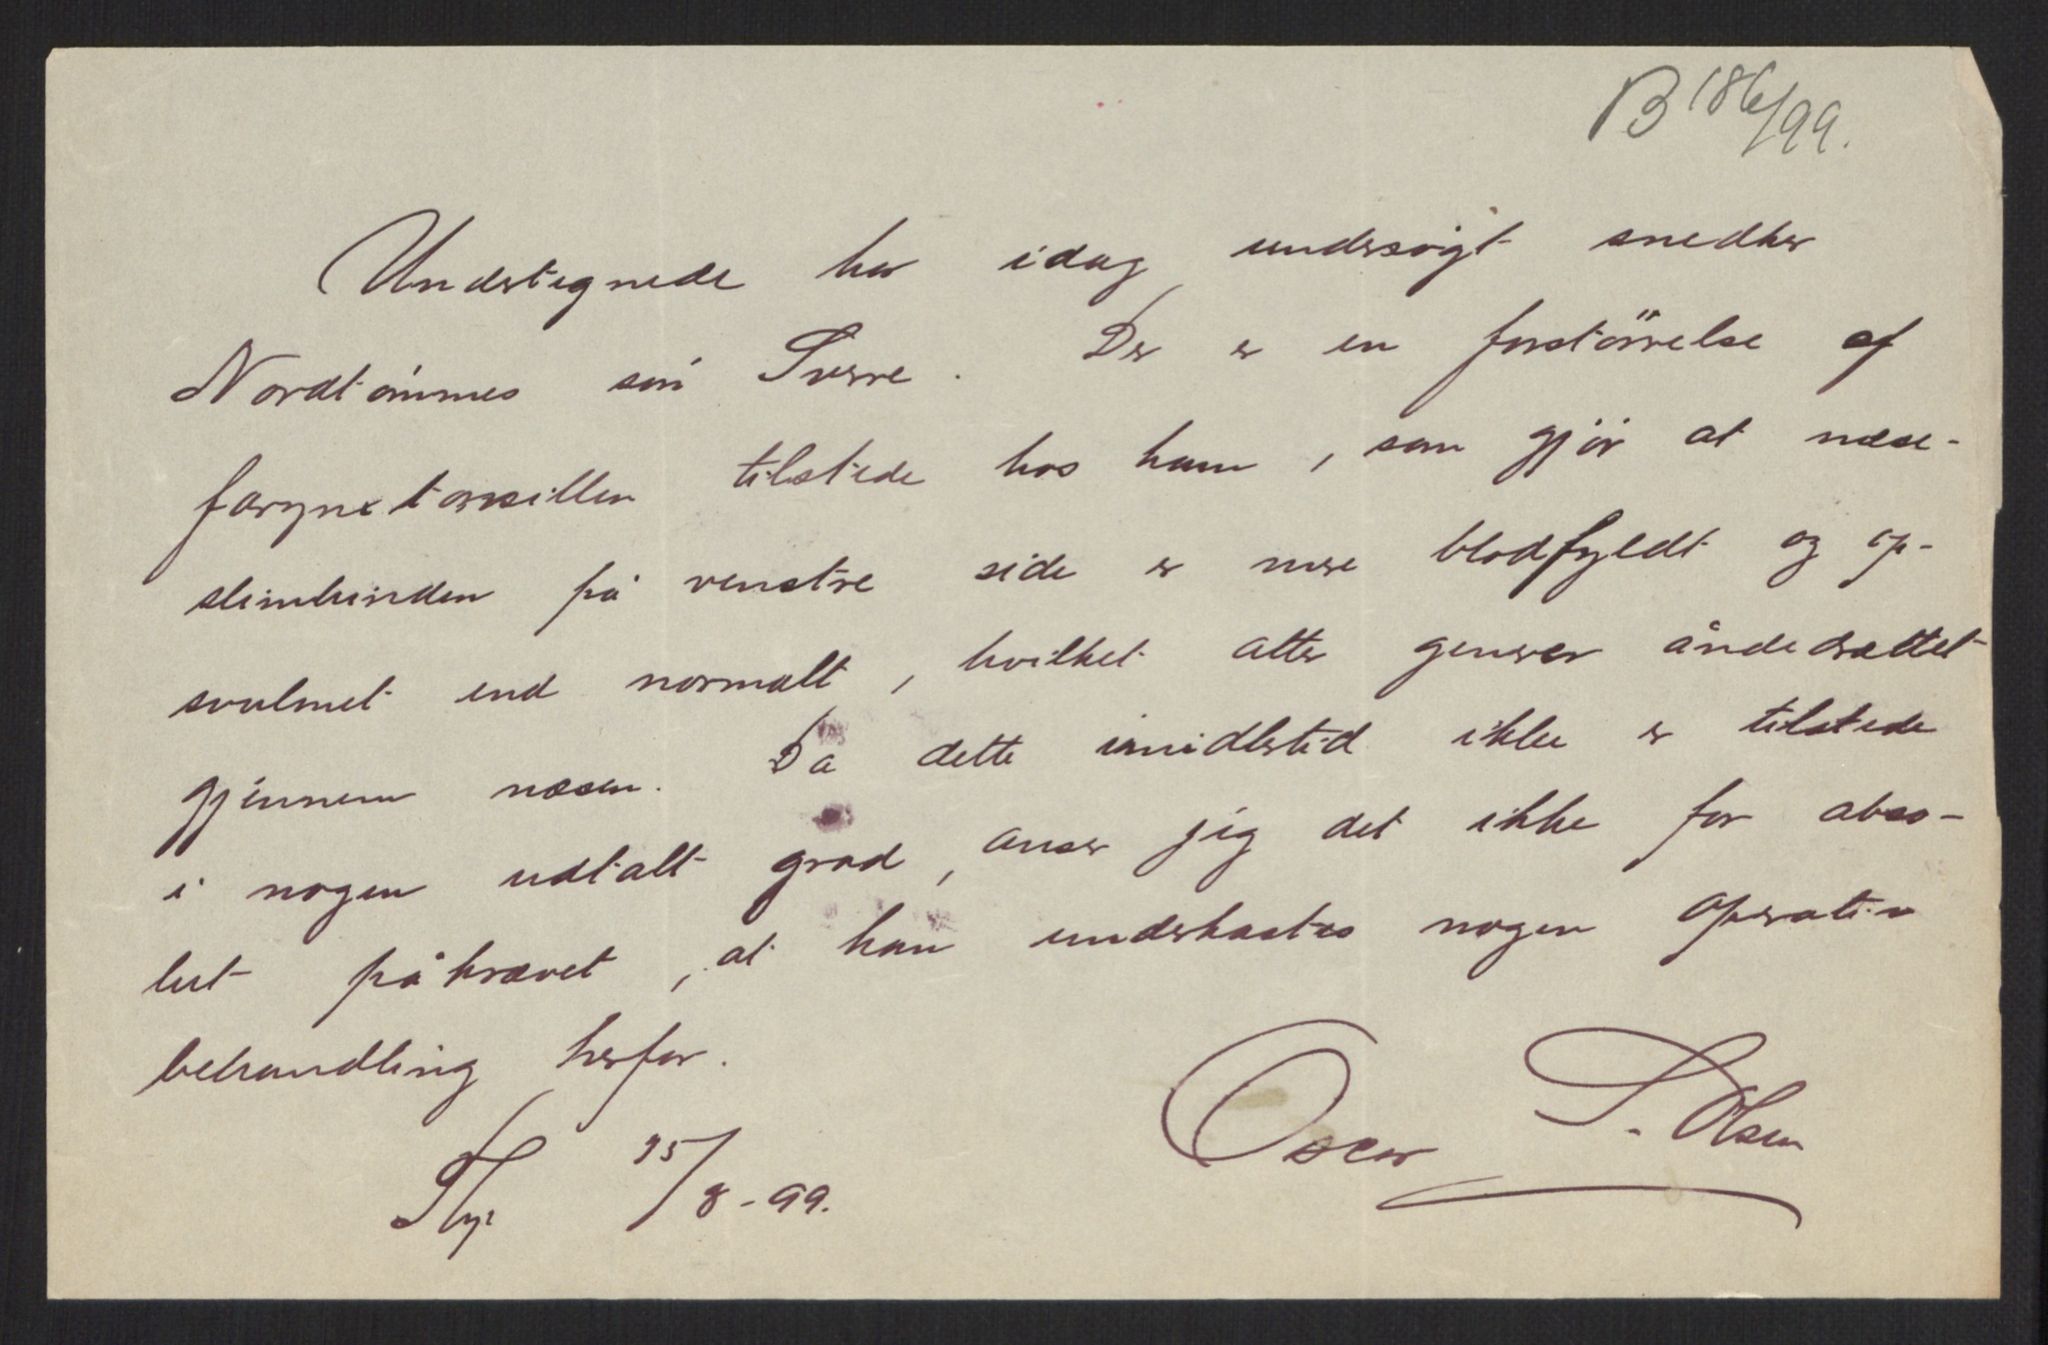 B 186/99.
Undertegnede har idag undersøgt snedker
Nordtømmes søn Sverre. Der er en forstörrelse af
farynxtonsillen tilstede hos ham, som gjör at næse-
slimhinden på venstre side er mere blodfyldt og op-
svulmet end normalt, hvilket atter generer åndedrættet
gjennem næsen. Da dette imidlertid ikke er tilstede
i nogen udtalt grad, anser jeg det ikke for abso-
lut påkrævet, at han underkastes nogen operativ
behandling herfor.
25/8-99.
Oscar S. Olsen